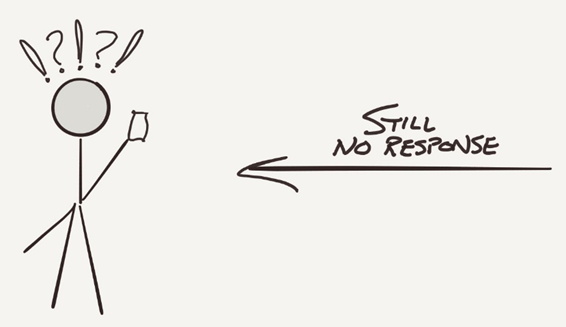 !?!?!
STILL
NO RESPONSE